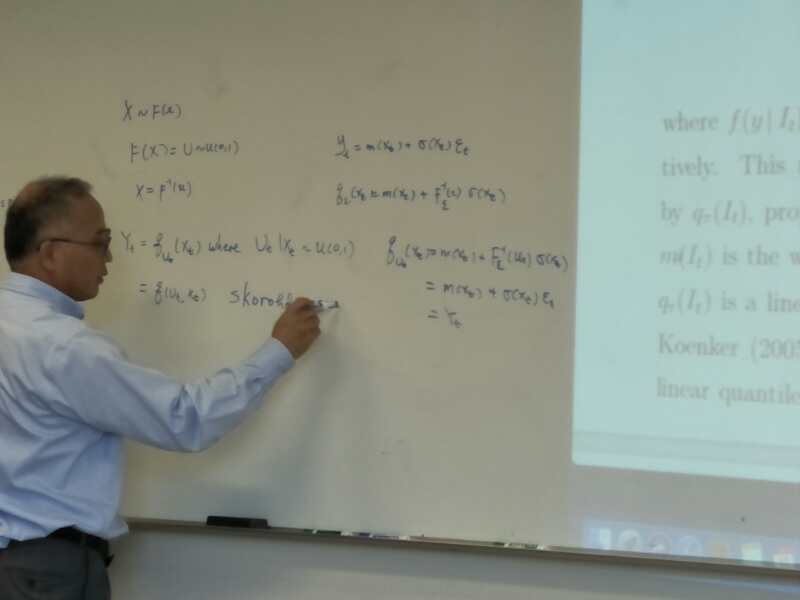 X ~ F(x)
F(X) = U ~ U(0,1)
X = F⁻¹(u)
Y_t = q_{U_t}(X_t) where U_t | X_t ~ U(0,1)
= q(U_t, X_t)
y_t = m(X_t) + σ(X_t) ε_t
q_τ(X_t) = m(X_t) + F_ε⁻¹(τ) σ(X_t)
q_{U_t}(X_t) = m(X_t) + F_ε⁻¹(U_t) σ(X_t)
= m(X_t) + σ(X_t) ε_t
= Y_t
where f(y | I_t)
tively. This
by q_τ(I_t), pro
m(I_t) is the w
q_τ(I_t) is a line
Koenker (200
linear quantile